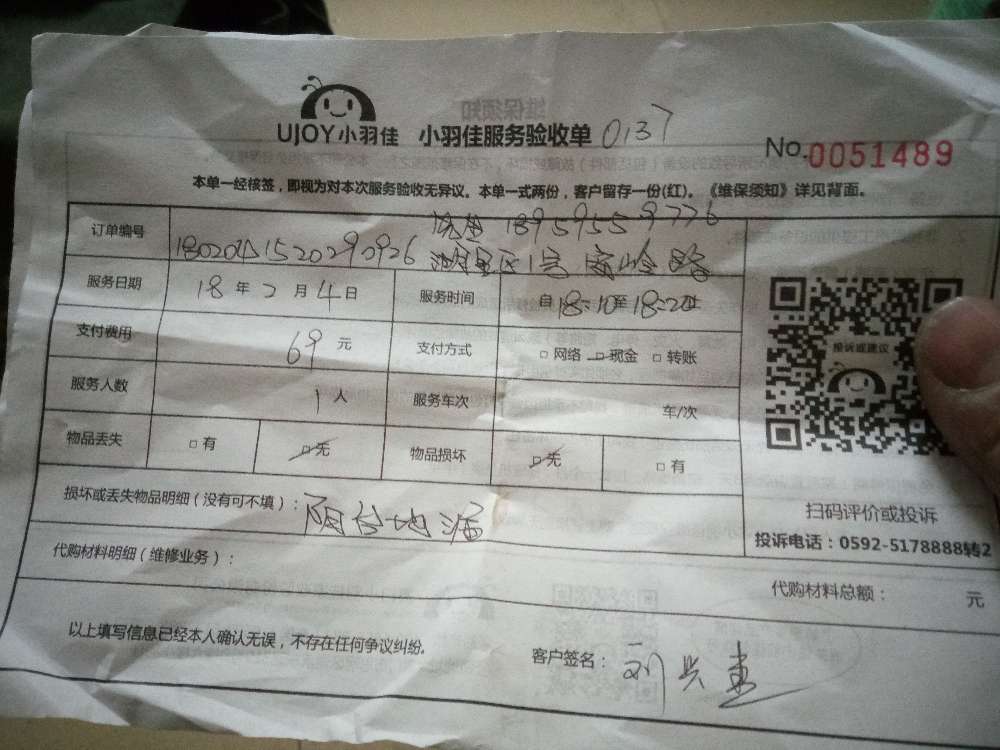 UJOY小羽佳 小羽佳服务验收单 0137
No.0051489
本单一经核签，即视为对本次服务验收无异议。本单一式两份，客户留存一份(红)。《维保须知》详见背面。
18959559776
订单编号
路
服务日期 18 年 2 月 4 日 服务时间 自18:10至18:20止
支付费用 69 元 支付方式 □网络 □现金 □转账
服务人数 1 人 服务车次 车/次
物品丢失 □有 □无 物品损坏 □无 □有
损坏或丢失物品明细（没有可不填）： 阳台地漏
代购材料明细（维修业务）：
投诉或建议
扫码评价或投诉
投诉电话：0592-5178888转2
代购材料总额： 元
以上填写信息已经本人确认无误，不存在任何争议纠纷。
客户签名： 刘
维保须知